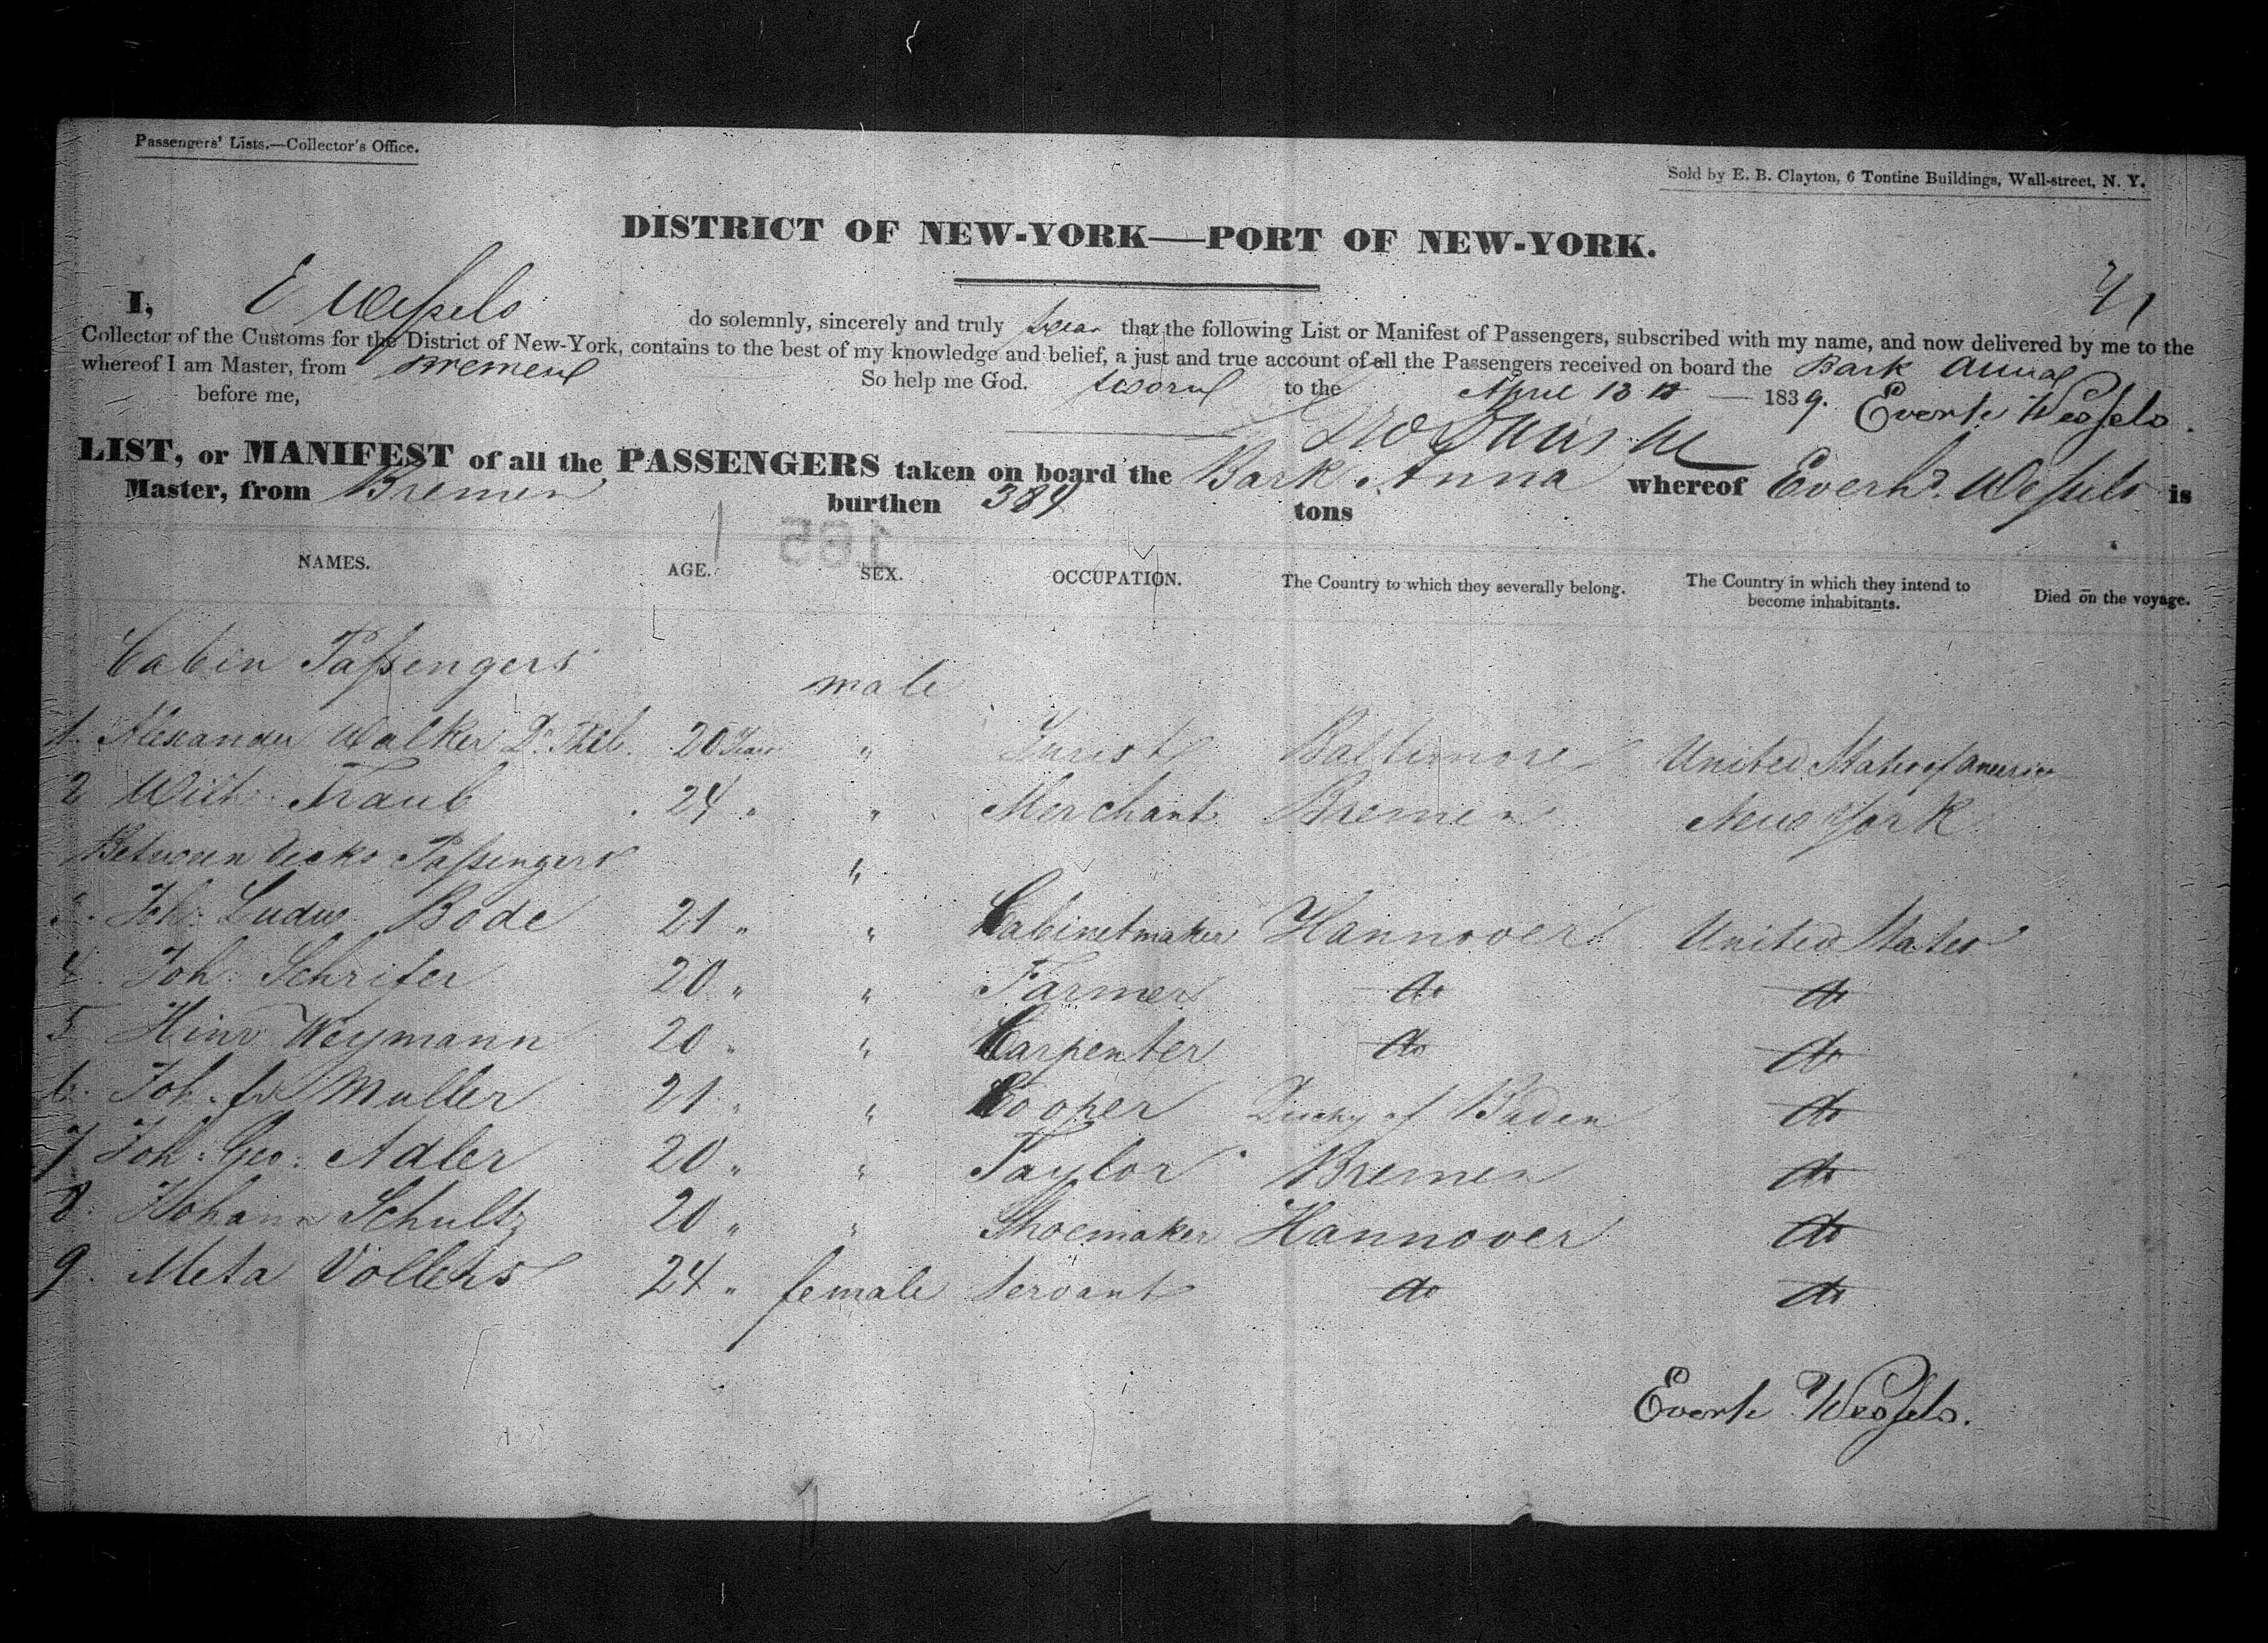 Passengers' Lists.—Collector's Office.
Sold by E. B. Clayton, 6 Tontine Buildings, Wall-street, N. Y.
DISTRICT OF NEW-YORK—PORT OF NEW-YORK.
I, E Wessels do solemnly, sincerely and truly swear that the following List or Manifest of Passengers, subscribed with my name, and now delivered by me to the
Collector of the Customs for the District of New-York, contains to the best of my knowledge and belief, a just and true account of all the Passengers received on board the Bark Anna
whereof I am Master, from Bremen So help me God. sworn to the April 13th 1839. Everh Wessels.
before me,
LIST, or MANIFEST of all the PASSENGERS taken on board the Bark Anna whereof Everhd. Wessels is
Master, from Bremen burthen 384 tons
165
NAMES. AGE. SEX. OCCUPATION. The Country to which they severally belong. The Country in which they intend to become inhabitants. Died on the voyage.
Cabin Passengers
male
1. Alexander Walker Dr. Phil. 20 Years " Jurist Baltimore United States of America
2 Wilh. Traub 24 " " Merchant Bremen New York
Between decks Passengers "
3. Joh. Ludw Bode 21 " " Cabinetmaker Hannover United States
4. Joh. Schrifer 20 " " Farmer do do
5 Hinr Weymann 20 " " Carpenter do do
6. Joh. fr Muller 21 " " Cooper Duchy of Baden do
7 Joh. Geo. Adler 20 " " Taylor Bremen do
8. Johann Schultz 20 " " Shoemaker Hannover do
9. Meta Vollers 24 " female Servant do do
Everh Wessels.